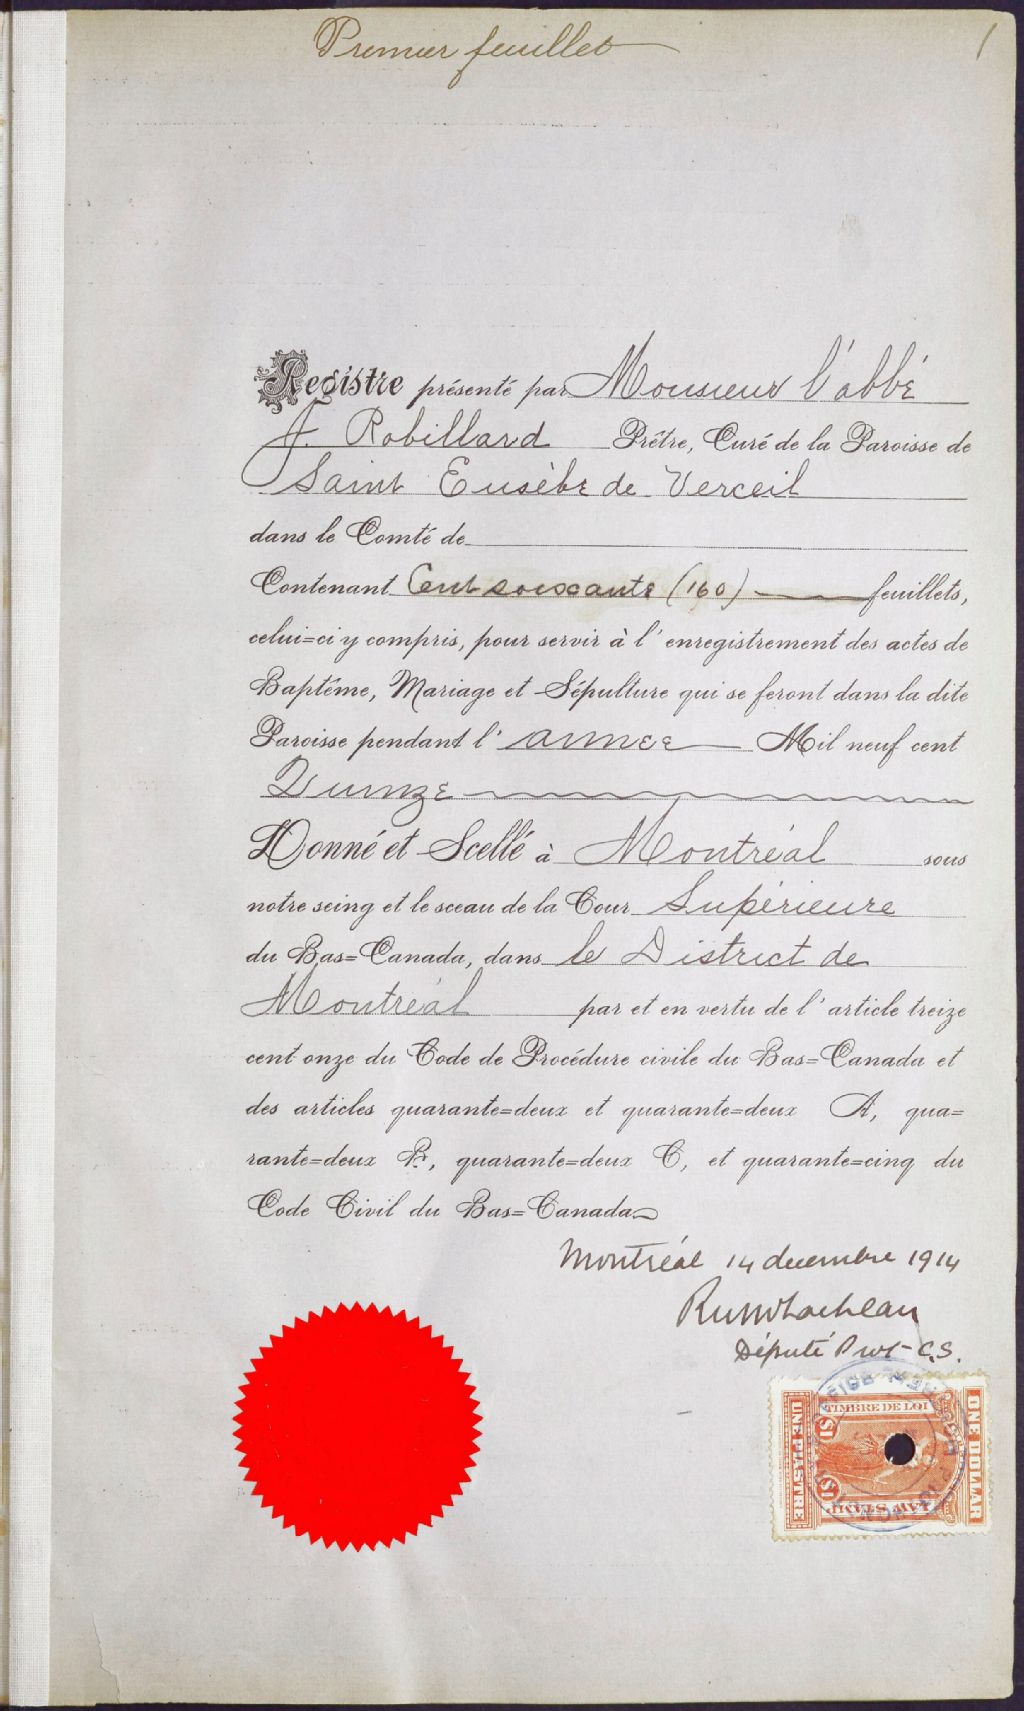 Premier feuillet
1
Registre présenté par Monsieur l'abbé
J. Robillard Prêtre, Curé de la Paroisse de
Saint Eusèbe de Verceil
dans le Comté de
Contenant Cent soixante (160) feuillets,
celui=ci y compris, pour servir à l'enregistrement des actes de
Baptême, Mariage et Sépulture qui se feront dans la dite
Paroisse pendant l'année Mil neuf cent
Quinze
Donné et Scellé à Montréal sous
notre seing et le sceau de la Cour Supérieure
du Bas=Canada, dans le District de
Montréal par et en vertu de l'article treize
cent onze du Code de Procédure civile du Bas=Canada et
des articles quarante=deux et quarante=deux A, qua=
rante=deux B, quarante=deux C, et quarante=cinq du
Code Civil du Bas=Canada
Montréal 14 decembre 1914
Député Prot C.S.
TIMBRE DE LOI
$1 $1
LAW STAMP
UNE PIASTRE
ONE DOLLAR